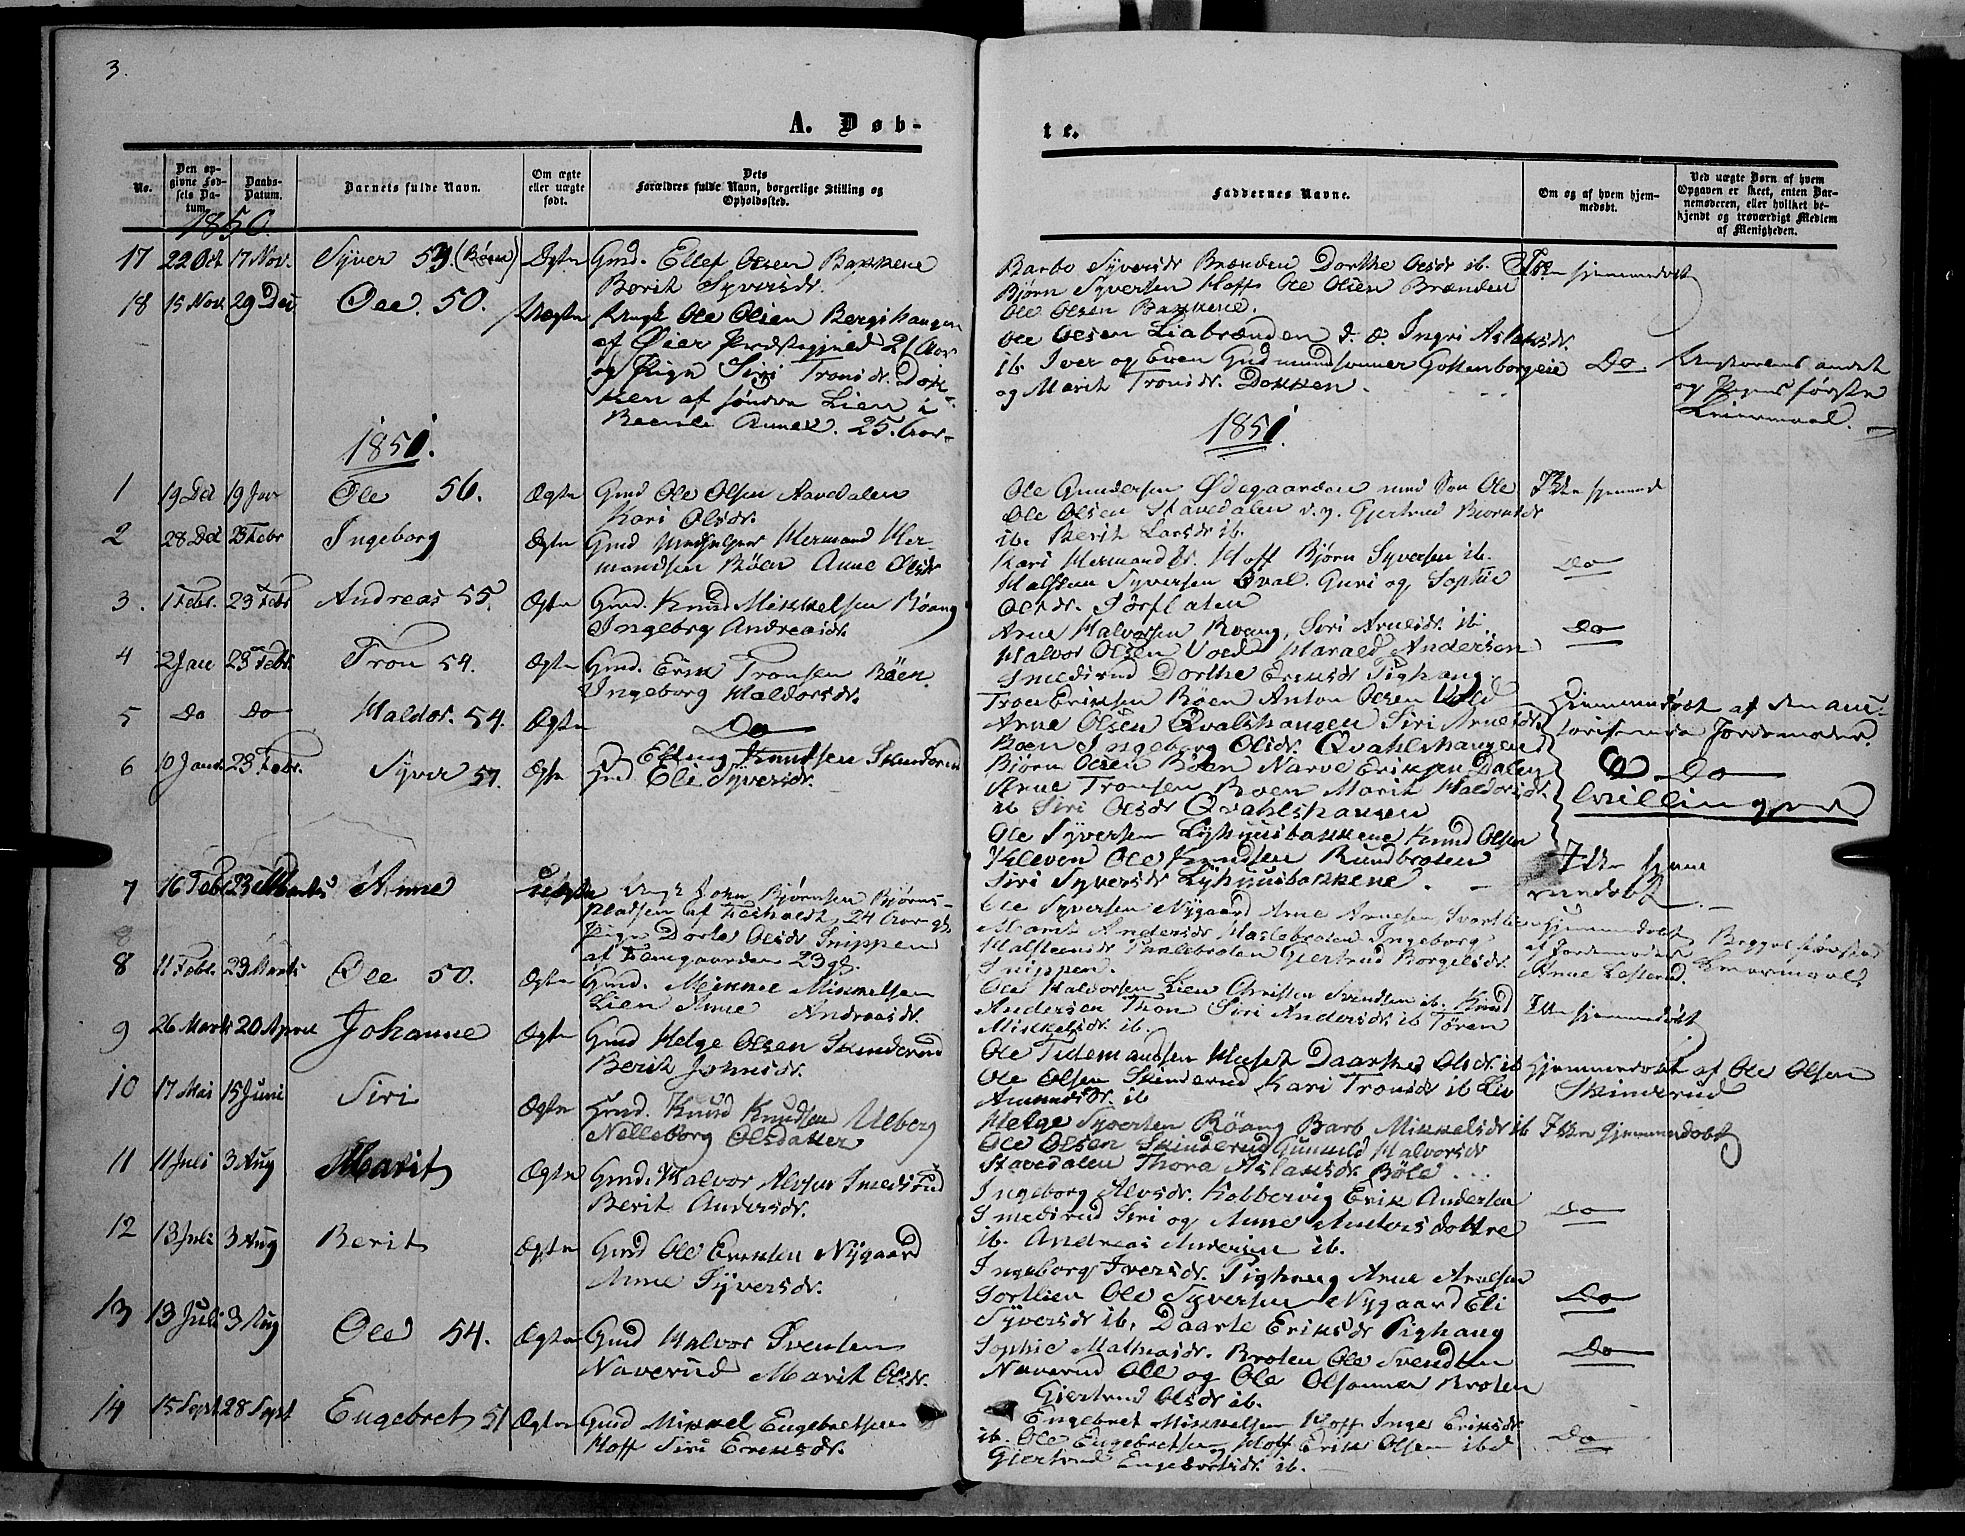 3.
A. Døb-
No.
Den op-
givne Fød-
sels Da-
tum.
Daabs-
Datum.
Barnets fulde Navn.
Om ægte
eller uægte
født.
Dets
Forældres fulde Navn, borgerlige Stilling og
Opholdssted.
1850.
17 22 Oct 17 Nov. Syver 59. Ægte Gmd. Ellef Olsen Bakkene
Berit Syversdr.
18 15 Nov 29 Dec Ole. 50. Uægte Ungk Ole Olsen Bergshaugen
af Øier Præstegjeld 21 Aar
og Pige Siri Tronsdr. Dok-
ken af søndre Lien i
Annex. 25. Aar
1851.
1 19 Dec 19 Jan Ole 56. Ægte Gmd Ole Olsen
Kari Olsdr.
2 28 Dec 23 Febr Ingeborg Ægte Gmd Hermand Her-
mandsen Røen Anne Olsdr
3. 1 Febr. 23 Febr Andreas 55. Ægte Gmd. Knud Mikkelsen Røang
Ingeborg Andreasdr.
4 2 Jan 23 Febr. Tron 54. Ægte Gmd. Erik Tronsen Røen
Ingeborg Haldorsdr.
5 Do Do Haldor. 54. Ægte Do
6 10 Janr 23 Febr. Syver 57. Ægte Gmd Elling Knudsen Skinderud
Eli Syversdr.
7 16 Febr 23 Marts Anne Uægte Ungk John Bjørnsen Bjørns-
pladsen af 24 Aar gl.
Pige Dorte Olsdr Snippen
af 23 gl.
8 11 Febr. 23 Marts Ole 50. Ægte Gmd. Mikkel Mikkelsen
Lien Anne Andreasdr.
9 26 Marts 20 April Johanne Ægte Gmd Helge Olsen Skinderud
Berit Johnsdr.
10 17 Mai 15 Juni Siri Ægte Gmd. Knud Knudsen Ulberg
Nelleborg Olsdatter
11 11 Juli 3 Aug Marit Ægte Gmd. Halvor Alvsen Smedsrud
Berit Andersdr.
12 13 Juli 3 Aug Berit Ægte Gmd Ole Eriksen Nygaard
Anne Syversdr.
13 13 Juli 3 Aug Ole 54. Ægte Gmd Halvor Svensen
Naverud Marit Olsdr.
14 15 Sept 28 Sept. Engebret 51 Ægte Gmd Mikkel Engebretsen
Hoff Siri Eriksdr.
te.
Faddernes Navne.
Om og af hvem hjem-
medøbt.
Ved uægte Børn af hvem
Opgaven er skeet, enten Bar-
nemoderen, eller hvilket be-
kjendt og troværdigt Medlem
af Menigheden.
Barbo Syversdr Brænden Dorthe Olsdr ib. Ikke hjemmedøbt
Bjørn Syversen Hoff Ole Olsen Brænden
Ole Olsen Bakkene.
Ole Olsen Liabrænden Ingri Aslaksdr.
ib. Iver og Even Gudmundsønner Do Ungkarens andet
og Marit Tronsdr. Dokken. og Pigens første
Leiermaal.
1851.
Ole Gundersen Ødegaarden med Søn Ole Ikke hjemmed
Ole Olsen Stavedalen Gjertrud Bjørnsdr
ib. Berit Larsdr ib.
Kari Hermandsdr. Hoff Bjørn Syversen ib. Do
Halsten Syversen Qval. Guri og Sophie
Olsdr. Sørflaten
Arne Halvorsen Roang, Siri Arnesdr. ib. Do
Halvor Olsen Vold Harald Andersen
Smedsrud Dorthe Eriksdr Pighaug.
Tron Eriksen Røen Anton Olsen Vold Hjemmedøbt af den auc-
Arne Olsen Qvalshaugen Siri Arnesdr. toriserede Jordemoder.
Røen Ingeborg Olsdr. Qvahlshaugen
Bjørn Olsen Røen Narve Eriksen Dalen Do
Arne Tronsen Roen Marit Haldorsdr. Tvillinger
ib Siri Olsdr Qvahlshaugen
Ole Syversen Lyhuusbakkene Knud Olsen
Kleven Ole Knudsen Rundbroten Ikke hjem
Siri Syversdr Lyhuusbakkene. medøbt.
Ole Syversen Nygaard Arne Arnesen Svartlien Hjemmedøbt Begges første
Marit Andersdr Haslebroten Ingeborg af Jordemoder Leiermaal.
Halstensdr Gjertrud Borgelsdr. Arne
Snippen.
Ole Halvorsen Lien Christen Svendsen ib. Knud Ikke hjemmedøbt
Andersen Thon Siri Andersdr. ib Tøren
Mikkelsdr. ib.
Ole Tidemandsen Huset Daarthe Olsdr. ib Hjemmedøbt af Ole Olsen
Ole Olsen Skinderud Kari Tronsdr ib Liv Skinderud
Amundsdr. ib
Helge Syversen Røang Barb. Mikkelsdr ib Ikke hjemmedøbt
Ole Olsen Skinderud Gunild Halvorsdr
Stavedalen Thora Aslaksdr. Bøle
Ingeborg Alvsdr. Kobbervig Erik Andersen Do
Smedsrud Siri og Anne Andersdøttre
ib. Andreas Andersen ib.
Ingeborg Iversdr. Pighaug Arne Arnesen
Sortlien Ole Syversen Nygaard Eli Do
Syversdr ib. Daarte Eriksdr Pighaug
Sophie Mathiasdr. Broten Ole Svendsen Do
Naverud Ole og Ole Olsønner Broten
Gjertrud Olsdr ib.
Engebret Mikkelsen Hoff Inge Eriksdr.
ib. Ole Engebretsen Hoff Erik Olsen ib Do
Gjertrud Engebretsdr. ib.